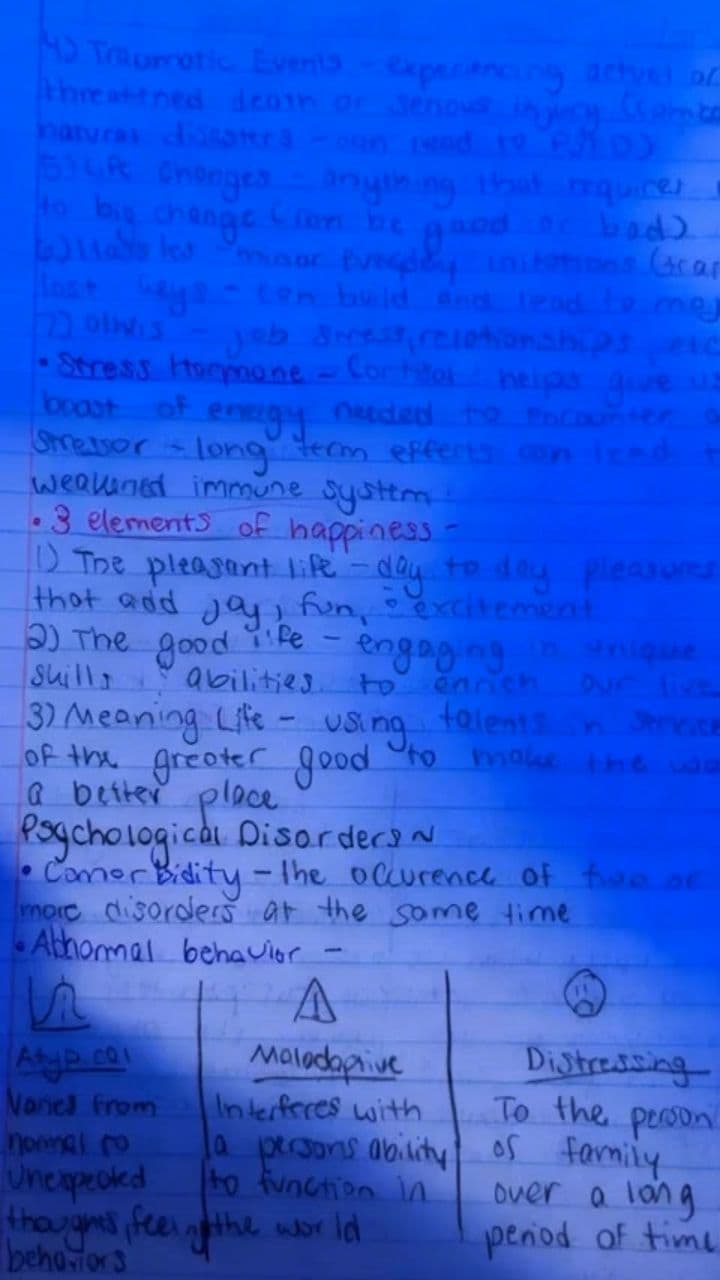 4) Traumatic Events - experiencing actual or
threattned death or serious injury (comba
natural disasters - can lead to PTSD)
5) Life Changes - anything that requires
to big change (can be good or bad)
6) Hassles - minor everyday irritations (
lost keys - can build and lead to maj
7) others - job stress, relationships, etc
• Stress Hormone - Cortisol helps give us
boost of energy needed to encounter a
stressor - long term effects can lead t
weakened immune system
• 3 elements of happiness -
1) The pleasant life - day to day pleasures
that add joy, fun, & excitement
2) The good life - engaging in unique
skills & abilities to enrich our live
3) Meaning Life - using talents in service
of the greater good to make the wo
a better place
Psychological Disorders ~
• Comorbidity - the occurence of two or
more disorders at the same time
• Abnormal behavior -
Atypical
Varies from
normal to
Unexpected
thoughts, feelings
behaviors
Maladaprive
Interferes with
a persons ability
to function in
the world
Distressing
To the person
or family
over a long
period of time